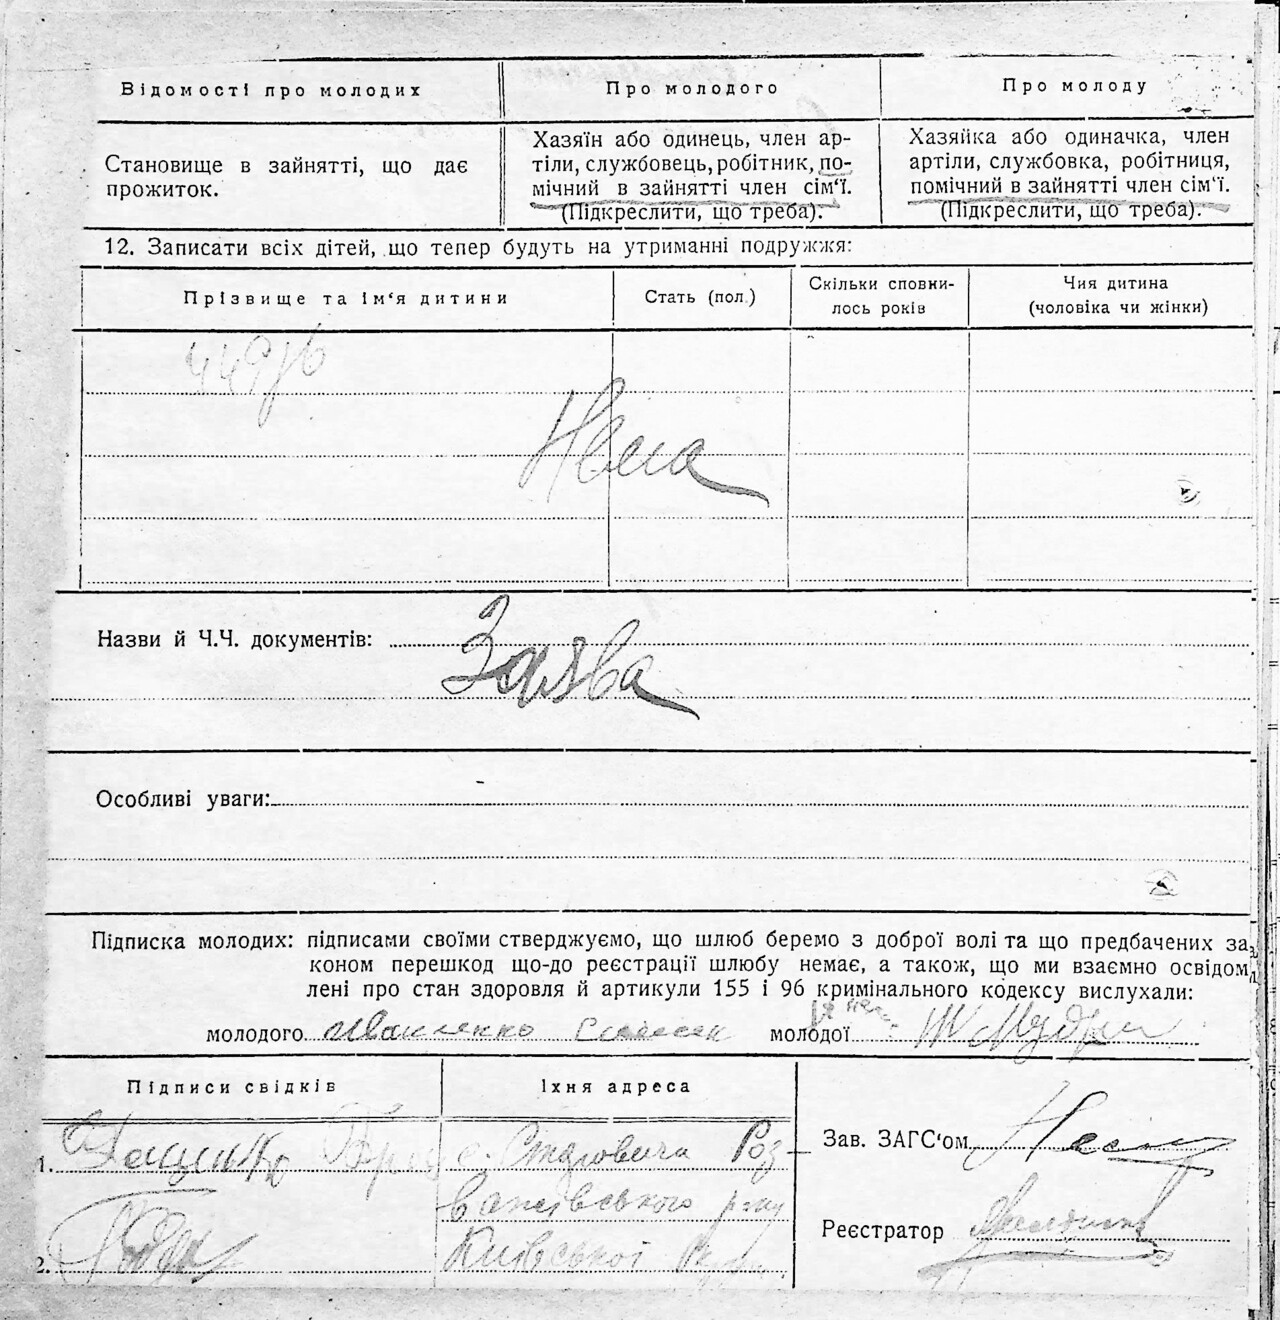 Відомості про молодих
Про молодого
Про молоду
Становище в зайнятті, що дає
прожиток.
Хазяїн або одинець, член ар-
тіли, службовець, робітник, по-
мічний в зайнятті член сім'ї.
(Підкреслити, що треба).
Хазяйка або одиначка, член
артіли, службовка, робітниця,
помічний в зайнятті член сім'ї.
(Підкреслити, що треба).
12. Записати всіх дітей, що тепер будуть на утриманні подружжя:
Прізвище та ім'я дитини
Стать (пол.)
Скільки сповни-
лось років
Чия дитина
(чоловіка чи жінки)
Нема
Назви й Ч.Ч. документів:
Заява
Особливі уваги:
Підписка молодих: підписами своїми стверджуємо, що шлюб беремо з доброї волі та що предбачених за-
коном перешкод що-до реєстрації шлюбу немає, а також, що ми взаємно освідом-
лені про стан здоровля й артикули 155 і 96 кримінального кодексу вислухали:
молодого Иваненко
молодої
Підписи свідків
Їхня адреса
1.
с. Старовича Роз-
важівського р-ну
2.
Київської
Зав. ЗАГС'ом
Реєстратор